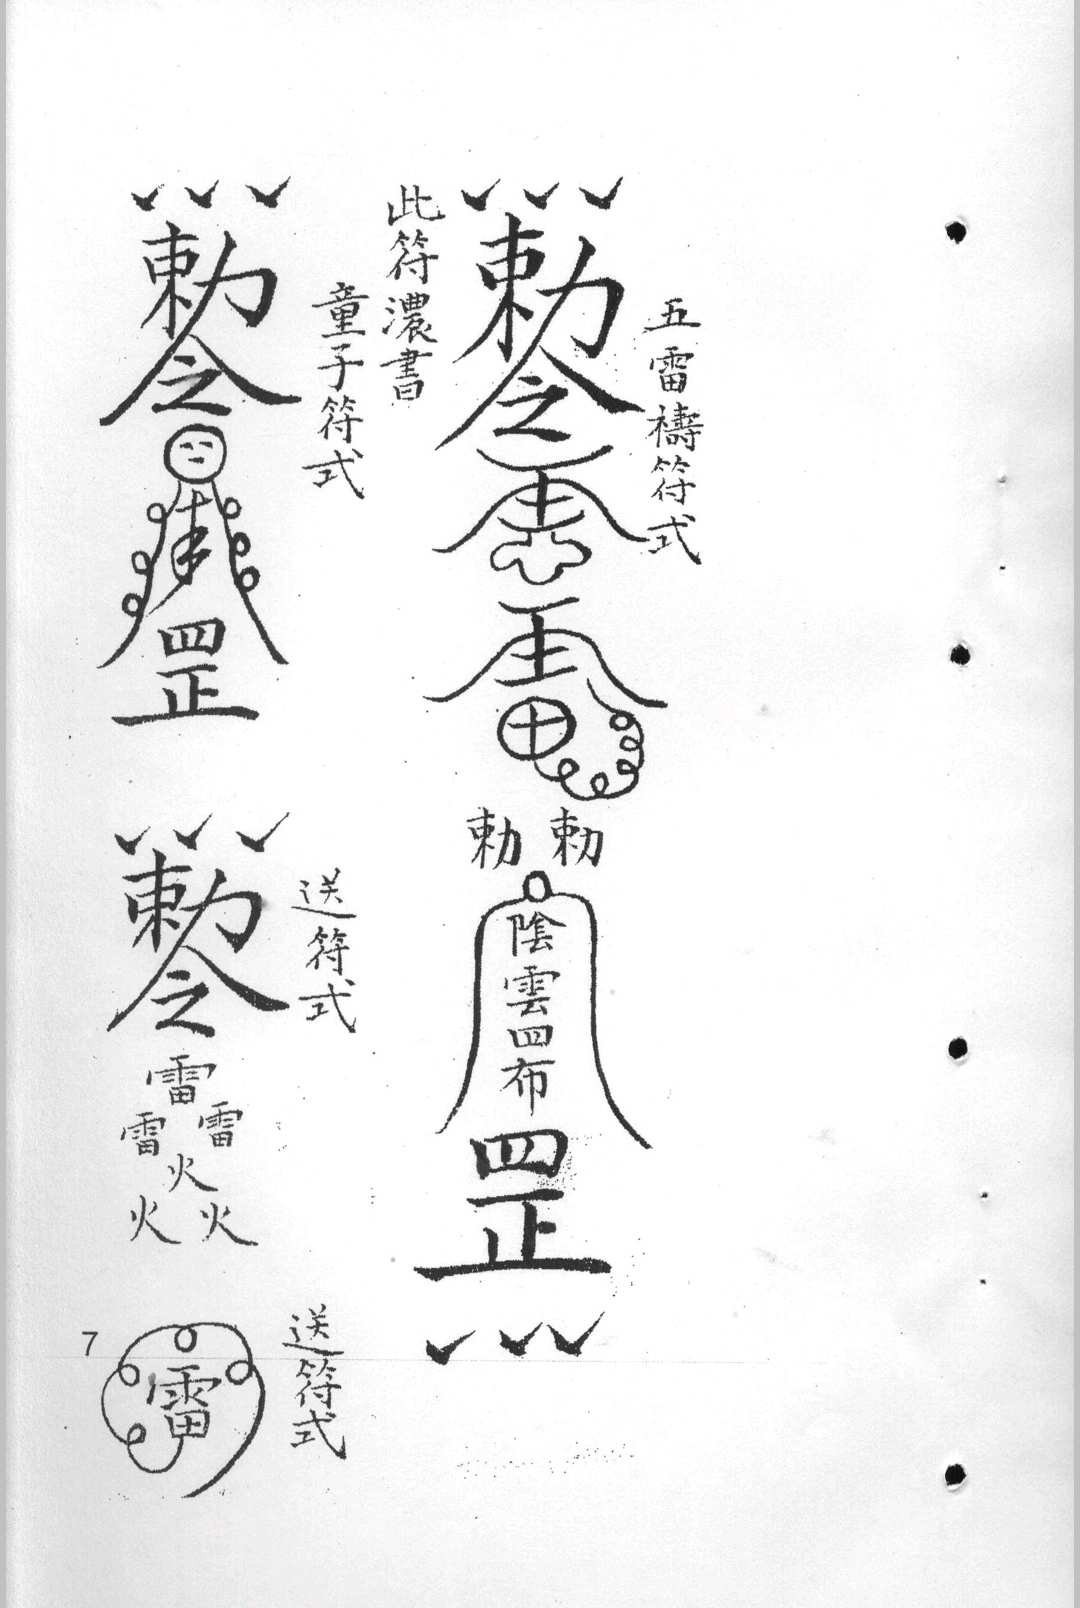 五雷禱符式
敕令
敕敕
陰雲四布
罡
此符濃書
童子符式
敕令
罡
送符式
敕令
雷
雷雷
火
火火
送符式
雷
7